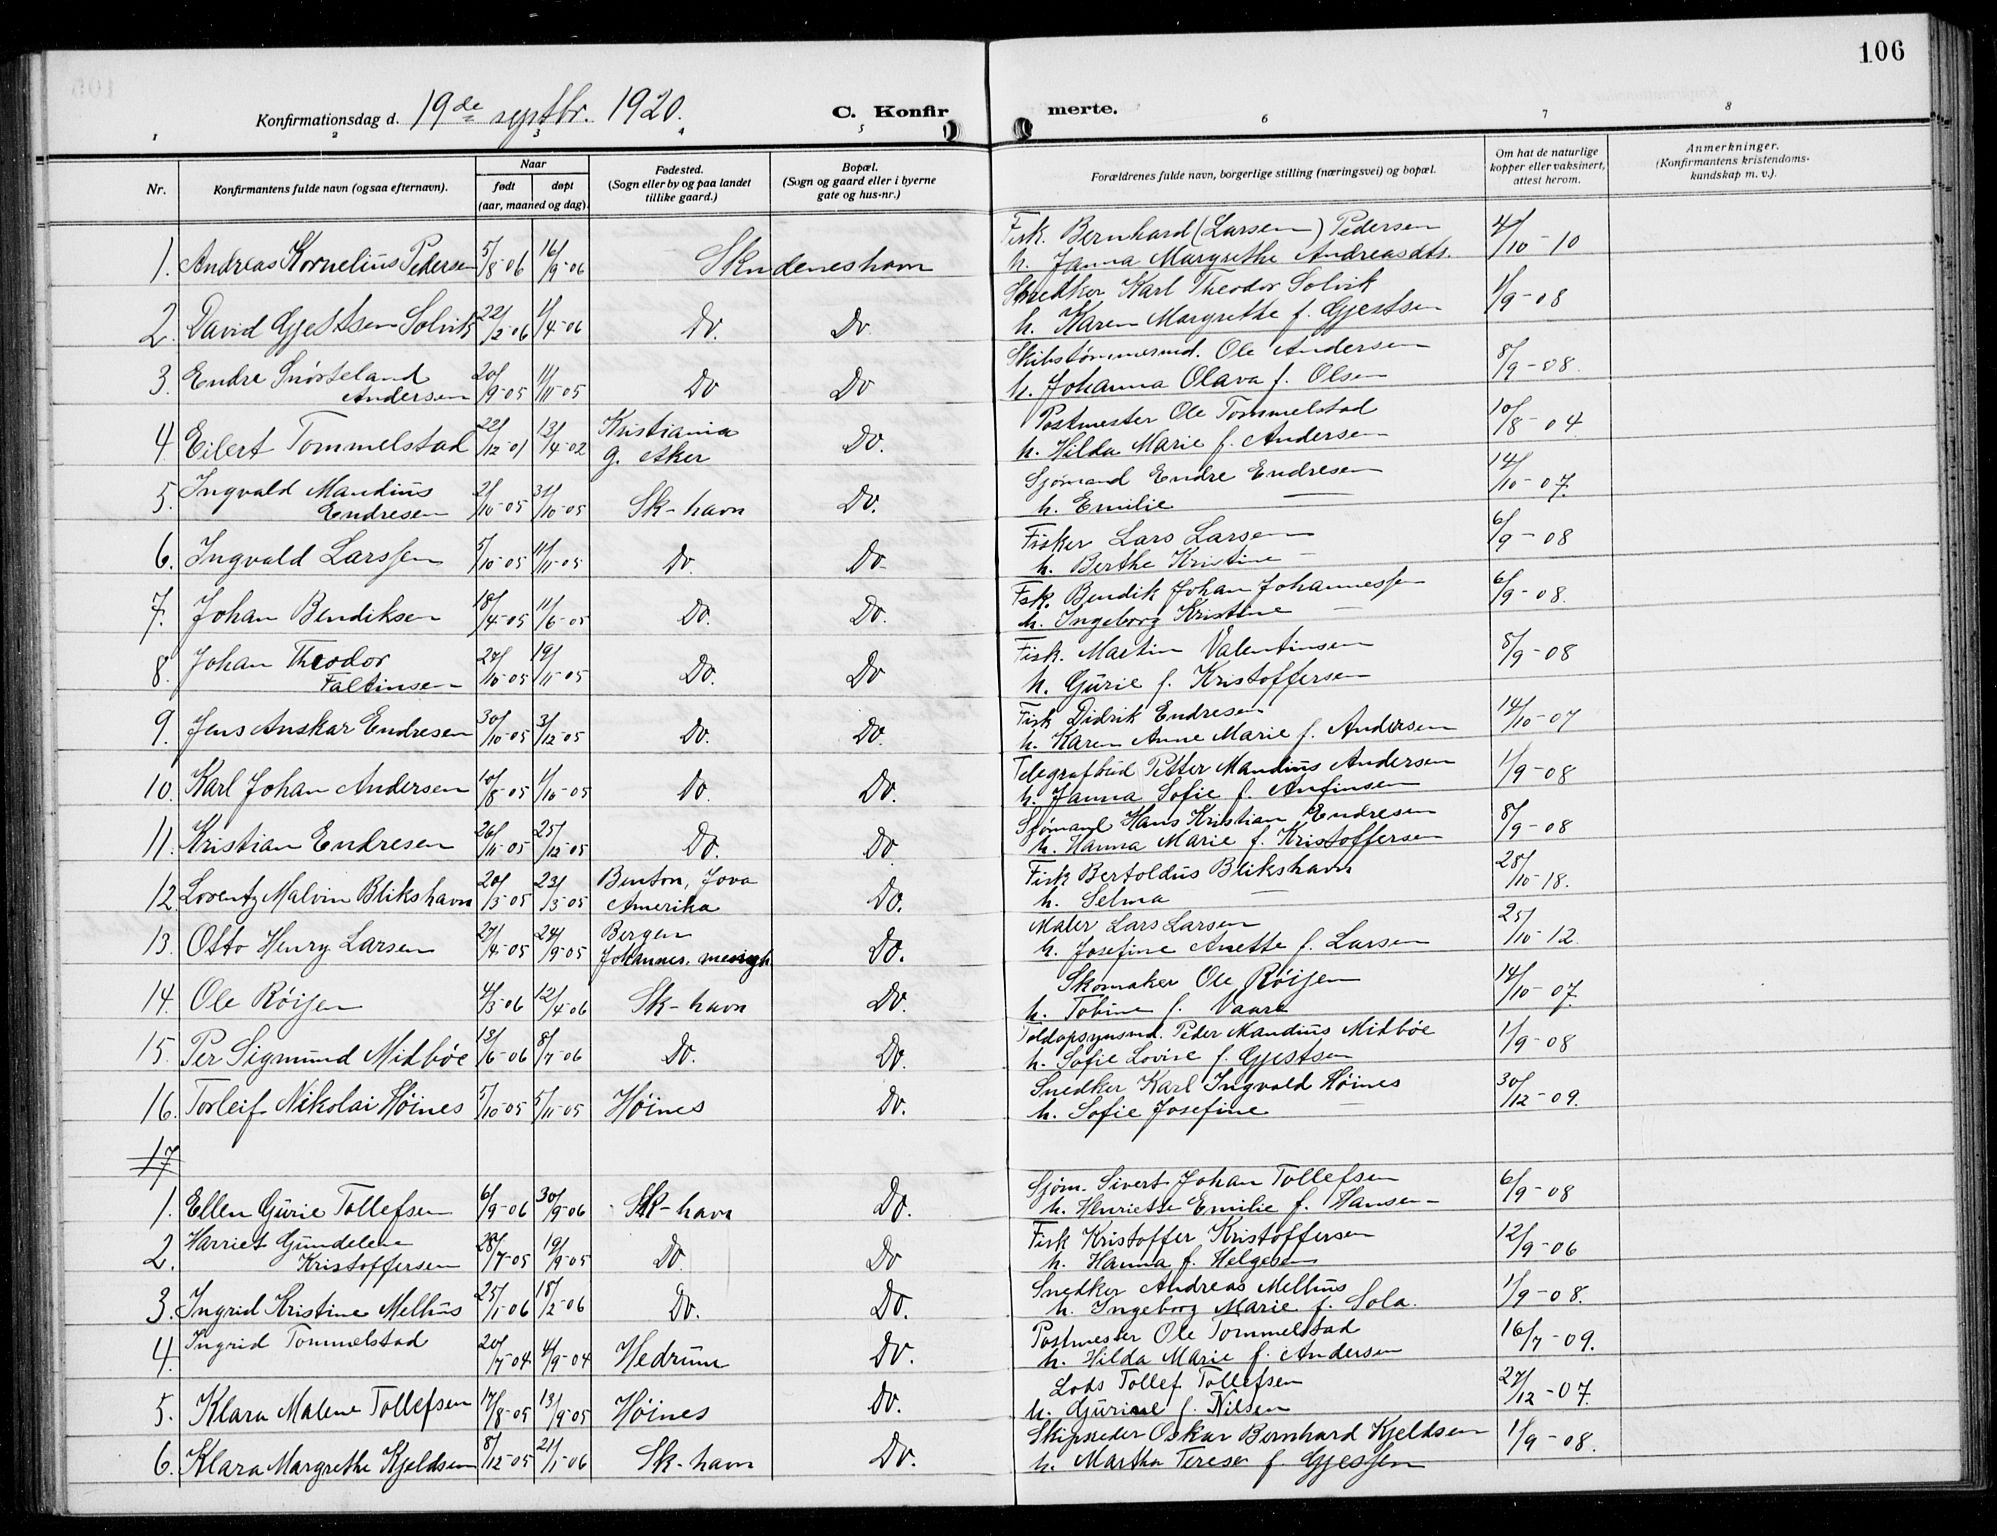 106
Konfirmationsdag d. 19de septbr. 1920.
C. Konfirmerte.
1 2 3 4 5 6 7 8
Nr.
Konfirmantens fulde navn (ogsaa efternavn).
Naar
født døpt
(aar, maaned og dag).
Fødested.
(Sogn eller by og paa landet
tillike gaard.)
Bopæl.
(Sogn og gaard eller i byerne
gate og hus-nr.)
Forældrenes fulde navn, borgerlige stilling (næringsvei) og bopæl.
Om hat de naturlige
kopper eller vaksinert,
attest herom.
Anmerkninger.
(Konfirmantens kristendoms-
kundskap m. v.).
1. Andreas Kornelius Pedersen 5/8-06 16/9-06 Skudeneshavn Fisk. Bernhard (Larsen) Pedersen 4/10-10
h. Janna Margrethe Andreasdtr.
2. David Gjestsen Solvik 22/2-06 1/4-06 Do. Do. Snedker Karl Theodor Solvik 1/9-08
h. Karen Margrethe f. Gjestsen
3. Endre Snørteland 20/9-05 11/11-05 Do Do Skibstømmermd. Ole Andersen 8/9-08.
Andersen h. Johanna Olava f. Olsen
4. Eilert Tommelstad 22/12-01 13/4-02 Kristiania Do. Postmester Ole Tommelstad 10/8-04
g. Aker h. Hilda Marie f. Andersen
5. Ingvald Mandius 2/10-05 31/10-05 Sk-havn Do. Sjømand Endre Endresen 14/10-07.
Endresen h. Emilie —
6. Ingvald Larssen 5/10-05 11/11-05 Do. Do. Fisker Lars Larsen 6/9-08
h. Berthe Kristine —
7. Johan Bendiksen 18/4-05 11/6-05 Do. Do. Fsk. Bendik Johan Johannessen 6/9-08.
h. Ingeborg Kristine —
8. Johan Theodor 27/10-05 19/11-05 Do. Do Fisk. Martin Valentinsen 8/9-08
Faltinsen h. Gurie f. Kristoffersen
9. Jens Anskar Endresen 30/10-05 3/12-05 Do. Do. Fisk Didrik Endresen 14/10-07
h. Karen Anne Marie f. Andersen
10. Karl Johan Andersen 10/8-05 1/10-05 Do. Do. Telegrafbud Petter Mandius Andersen 1/9-08
h. Janna Sofie f. Anfinsen
11. Kristian Endresen 26/11-05 25/12-05 Do. Do. Sjømand Hans Kristian Endresen 8/9-08
h. Hanna Marie f. Kristoffersen
12. Lorentz Malvin Blikshavn 20/3-05 23/5-05 Benton, Jova Do. Fisk Bertoldus Blikshavn 28/10-18.
Amerika h. Selma —
13. Otto Henry Larsen 27/4-05 24/9-05 Bergen Do. Maler Lars Larsen 25/10-12.
Johannes. menigh. h. Josefine Anette f. Larsen
14. Ole Röijen 4/3-06 12/4-06 Sk-havn Do. Skomaker Ole Röijen 14/10-07.
h. Tobine f. Vaare
15. Per Sigmund Midböe 13/6-06 8/7-06 Do. Do. Toldopsynsmd. Peder Mandius Midböe 1/9-08
h. Sofie Lovise f. Gjestsen
16. Torleif Nikolai Höines 5/10-05 5/11-05 Höines Do. Snedker Karl Ingvald Höines 30/12-09.
h. Sofie Josefine
17
1. Ellen Gurie Tollefsen 6/9-06 30/9-06 Sk-havn Do. Sjøm. Sivert Johan Tollefsen 6/9-08
h. Henriette Emilie f. Hansen
2. Harriet Gundelene 28/7-05 19/9-05 Do. Do Fisk Kristoffer Kristoffersen 12/9-06
Kristoffersen h. Hanna f. Helgesen
3. Ingrid Kristine Melhus 25/1-06 18/2-06 Do. Do. Snedker Andreas Melhus 1/9-08.
h. Ingeborg Marie f. Sola.
4. Ingrid Tommelstad 20/7-04 4/9-04 Hedrum Do. Postmester Ole Tommelstad 16/7-09.
h. Hilda Marie f. Andersen
5. Klara Malene Tollefsen 17/8-05 13/9-05 Höines Do. Lods Tollef Tollefsen 27/12-07.
h. Gurine f. Nilsen
6. Klara Margrethe Kjeldsen 8/12-05 21/1-06 Sk-havn Do. Skipsreder Oskar Bernhard Kjeldsen 1/9-08.
h. Martha Terese f. Gjessen